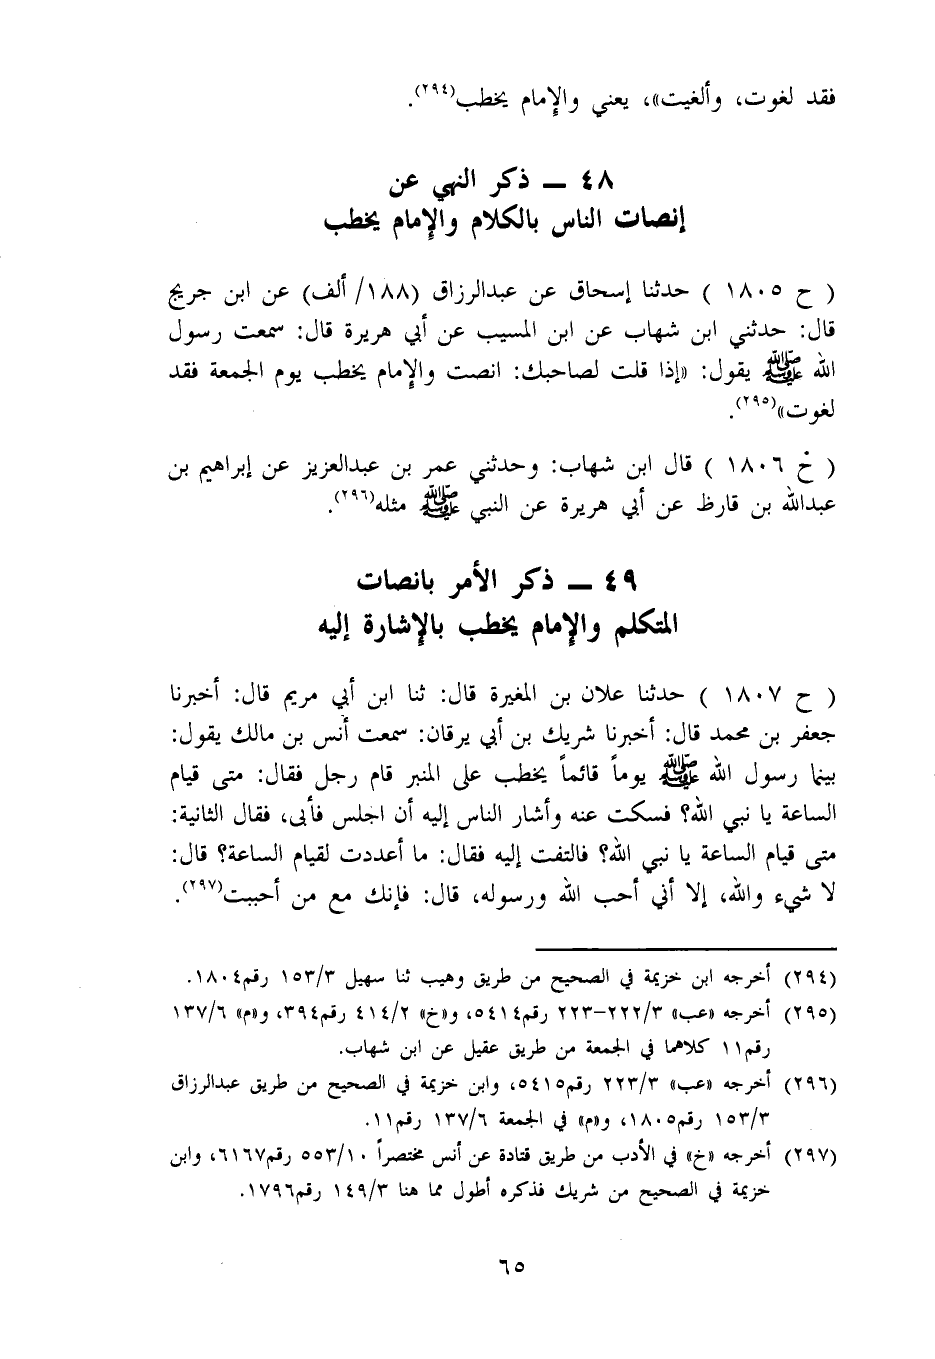 فقد لغوت، وألغيت»، يعني والإمام يخطب(٢٩٤).
٤٨ ــ ذكر النهي عن
إنصات الناس بالكلام والإمام يخطب
( ح ١٨٠٥ ) حدثنا إسحاق عن عبدالرزاق (١٨٨/ ألف) عن ابن جريج
قال: حدثني ابن شهاب عن ابن المسيب عن أبي هريرة قال: سمعت رسول
الله ﷺ يقول: «إذا قلت لصاحبك: انصت والإمام يخطب يوم الجمعة فقد
لغوت»(٢٩٥).
( خ ١٨٠٦ ) قال ابن شهاب: وحدثني عمر بن عبدالعزيز عن إبراهيم بن
عبدالله بن قارظ عن أبي هريرة عن النبي ﷺ مثله(٢٩٦).
٤٩ ــ ذكر الأمر بانصات
المتكلم والإمام يخطب بالإشارة إليه
( ح ١٨٠٧ ) حدثنا علان بن المغيرة قال: ثنا ابن أبي مريم قال: أخبرنا
جعفر بن محمد قال: أخبرنا شريك بن أبي يرقان: سمعت أنس بن مالك يقول:
بينما رسول الله ﷺ يوماً قائماً يخطب على المنبر قام رجل فقال: متى قيام
الساعة يا نبي الله؟ فسكت عنه وأشار الناس إليه أن اجلس فأبى، فقال الثانية:
متى قيام الساعة يا نبي الله؟ فالتفت إليه فقال: ما أعددت لقيام الساعة؟ قال:
لا شيء والله، إلا أني أحب الله ورسوله، قال: فإنك مع من أحببت(٢٩٧).
(٢٩٤) أخرجه ابن خزيمة في الصحيح من طريق وهيب ثنا سهيل ١٥٣/٣ رقم١٨٠٤.
(٢٩٥) أخرجه «عب» ٢٢٢/٣-٢٢٣ رقم٥٤١٤، و«خ» ٤١٤/٢ رقم٣٩٤، و«م» ١٣٧/٦
رقم١١ كلاهما في الجمعة من طريق عقيل عن ابن شهاب.
(٢٩٦) أخرجه «عب» ٢٢٣/٣ رقم٥٤١٥، وابن خزيمة في الصحيح من طريق عبدالرزاق
١٥٣/٣ رقم١٨٠٥، و«م» في الجمعة ١٣٧/٦ رقم١١.
(٢٩٧) أخرجه «خ» في الأدب من طريق قتادة عن أنس مختصراً ٥٥٣/١٠ رقم٦١٦٧، وابن
خزيمة في الصحيح من شريك فذكره أطول مما هنا ١٤٩/٣ رقم١٧٩٦.
٦٥